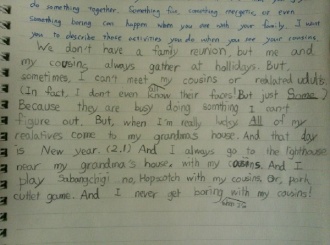 do something together. Something fun, something energetic, or even
something boring can happen when you are with your family. I want
you to describe these activities you do when you are your cousins.
We don't have a family reunion, but me and
my cousins always gather at hallidays. But,
sometimes, I can't meet my cousins or realated udults.
(In fact, I don't even know their faces! But just Some.)
Because they are busy doing somthing I can't
figure out. But, when I'm really lucky! All of my
realatives come to my grandma's house. And that day
is New year. (2,1) And I always go to the lighthouse
near my grandma's house with my cousins. And I
play Sabangchigi no, Hopscotch with my cousins. Or, park,
outlet game. And I never get boring with my cousins!